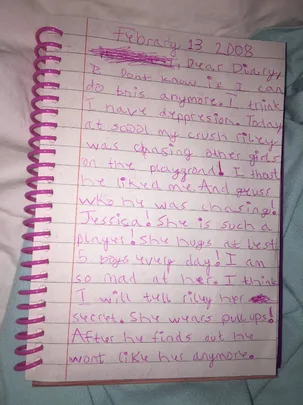 Febrary 13 2008
Dear Diary,
I Dont know if I can
do this anymore. I think
I have deppresion. Today
at scool my crush riley
was chasing other girls
on the playgrond! I thot
he liked me. And guess
who he was chasing!
Jessica! She is such a
player! She hugs at best
5 boys every day! I am
so mad at her. I think
I will tell riley her
secret. She wears pull ups!
After he finds out he
wont like her anymore.